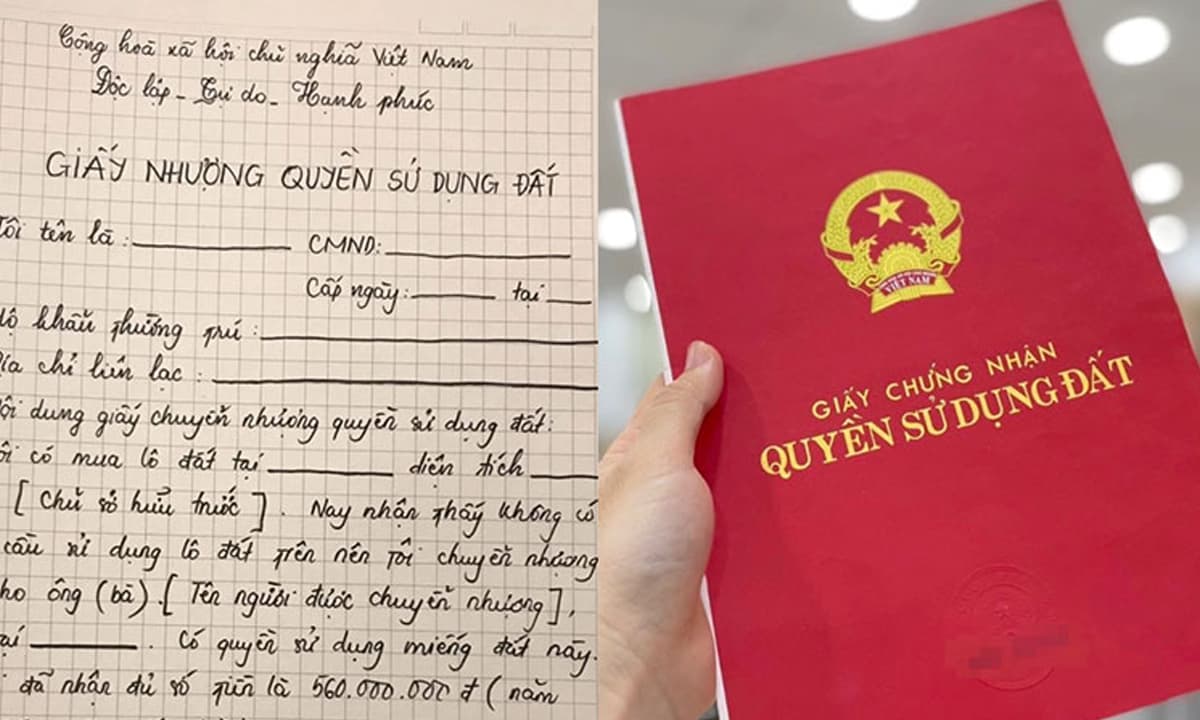 Cộng hoà xã hội chủ nghĩa Việt Nam
Độc lập - Tự do - Hạnh phúc
GIẤY NHƯỢNG QUYỀN SỬ DỤNG ĐẤT
Tôi tên là : CMND:
Cấp ngày: tại
khẩu thường trú :
chỉ liên lạc :
dung giấy chuyển nhượng quyền sử dụng đất:
có mua lô đất tại diện tích
[ Chủ sở hữu trước ] . Nay nhận thấy không có
cầu sử dụng lô đất trên nên tôi chuyển nhượng
ông (bà) [ Tên người được chuyển nhượng ],
. Có quyền sử dụng miếng đất này.
đã nhận đủ số tiền là 560.000.000 đ ( năm
VIỆT NAM
GIẤY CHỨNG NHẬN
QUYỀN SỬ DỤNG ĐẤT